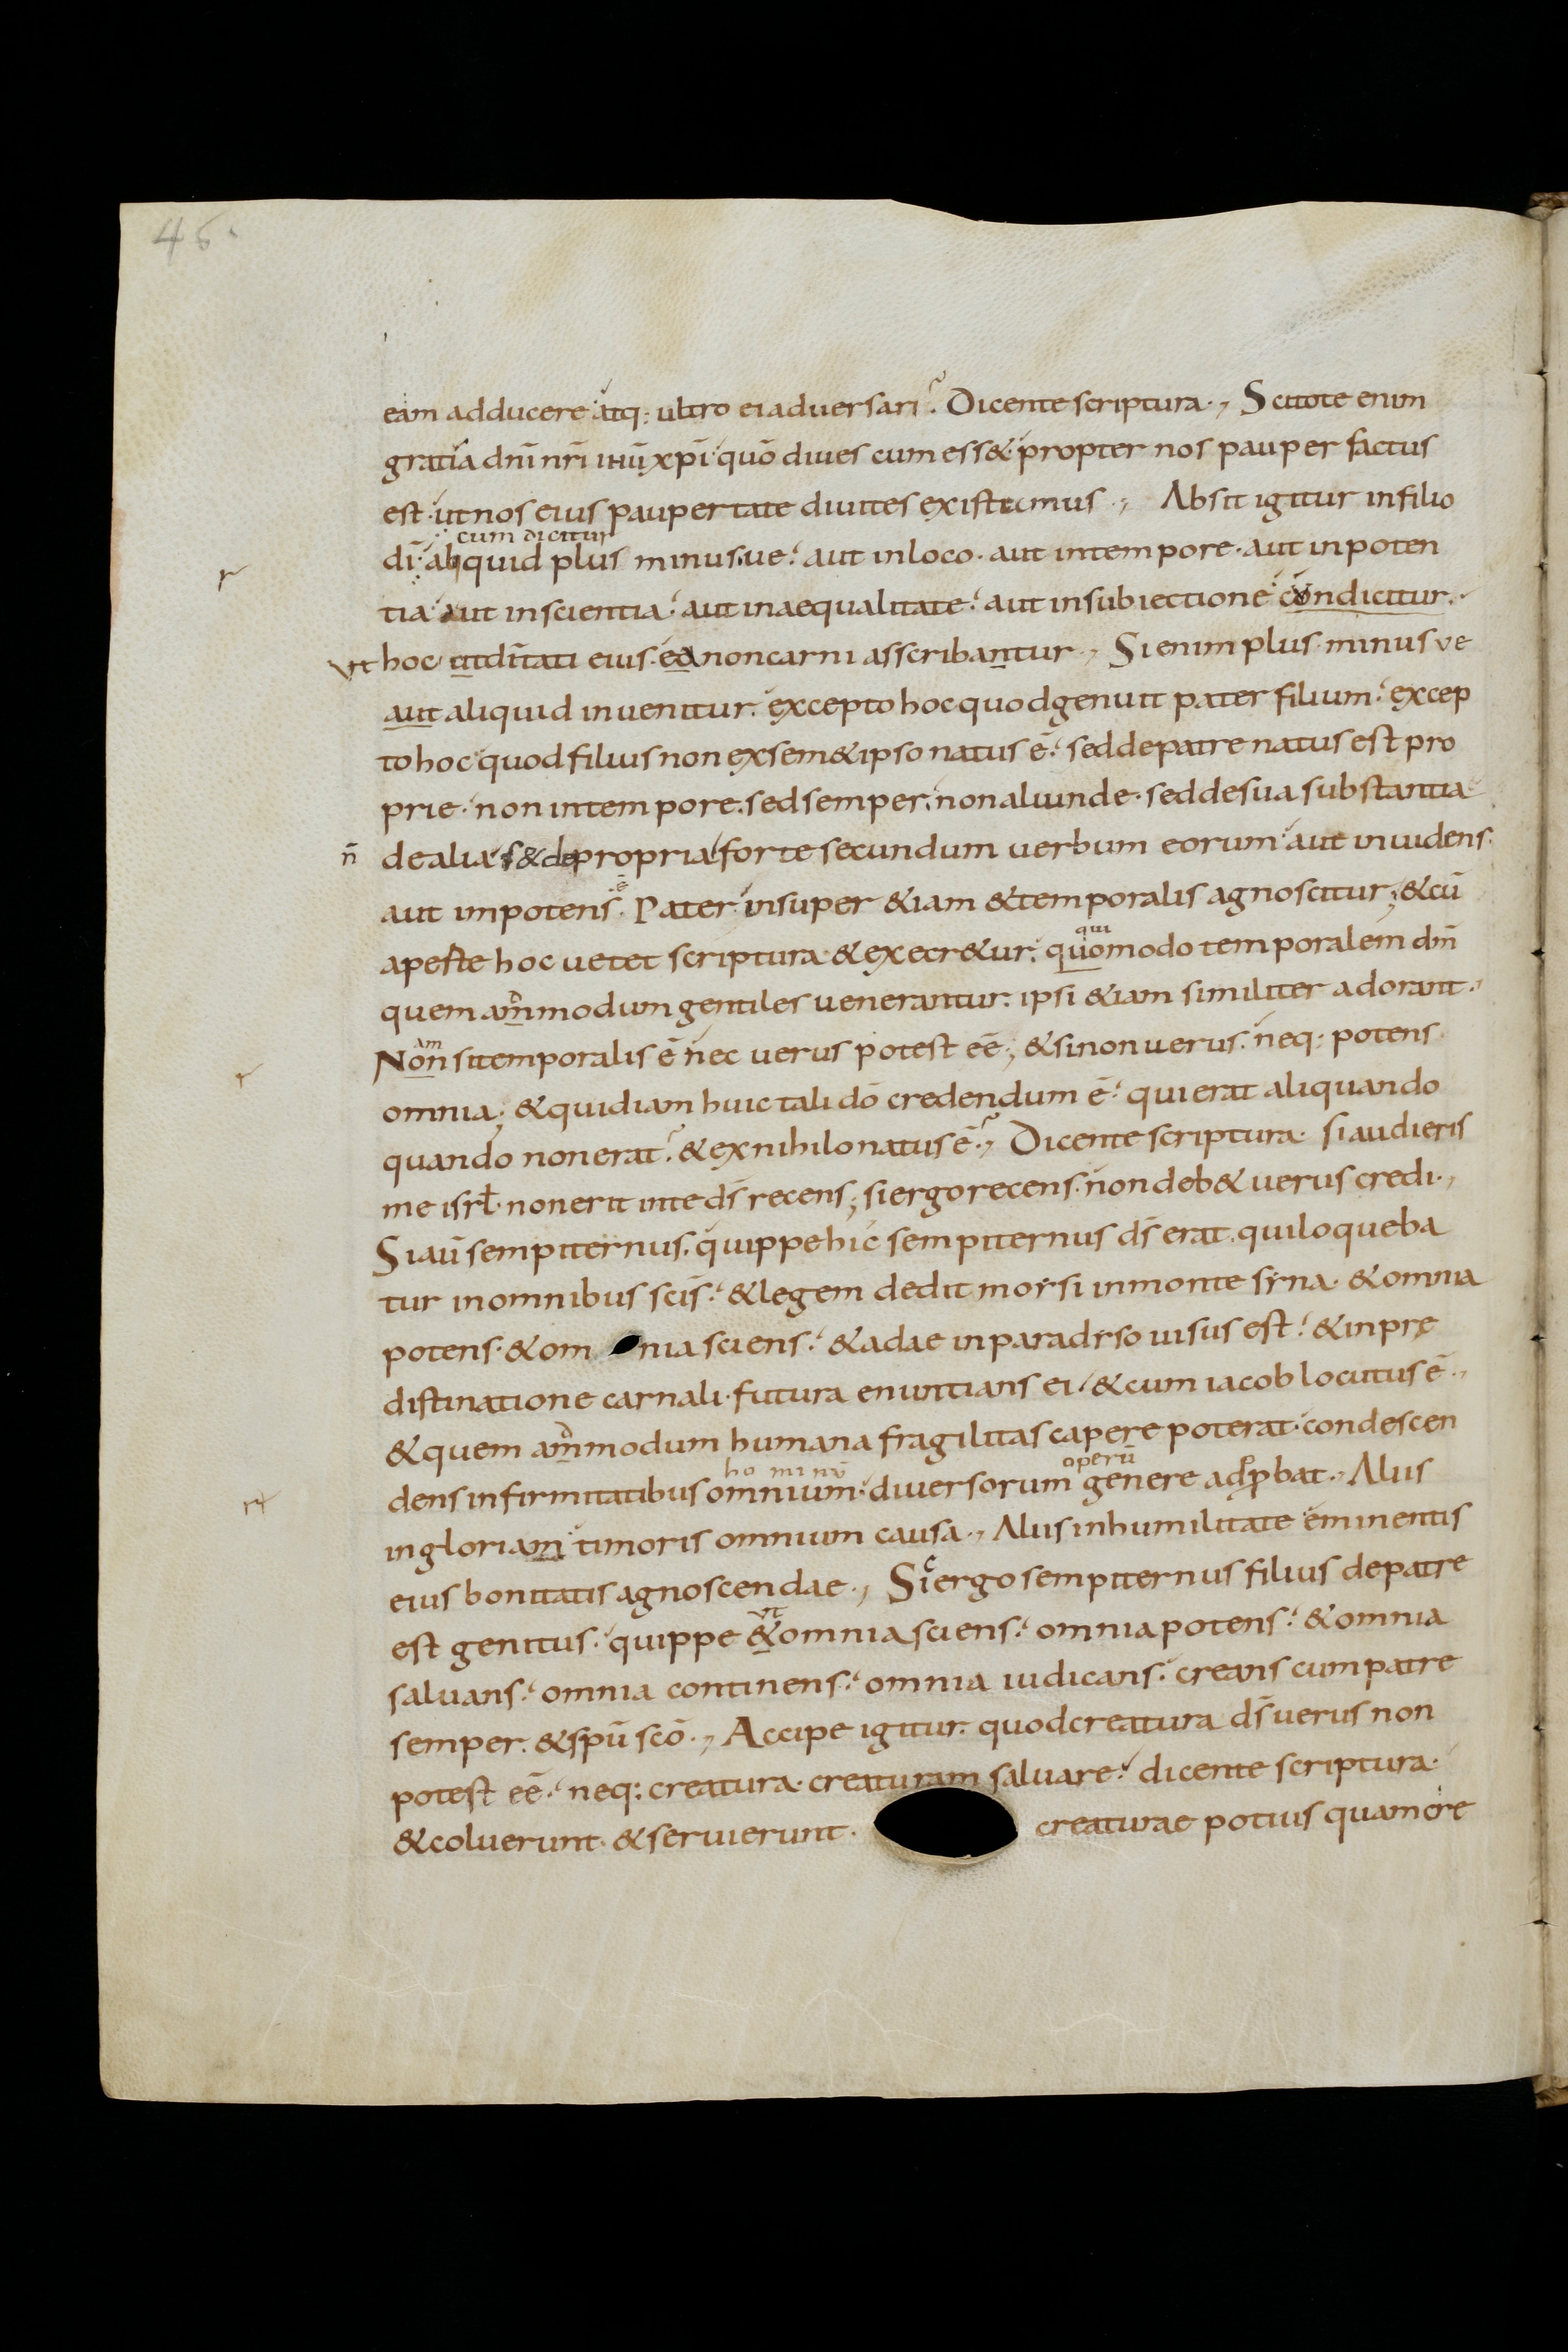 46.
eam adducere atq: ultro ei adversari? Dicente scriptura. Scitote enim
gratia dn̄i nr̄i ihū xpī quō dives cum ess& propter nos pauper factus
est ut nos eius paupertate divites existimus. Absit igitur in filio
cum dicitur
dī aliquid plus minusve aut in loco. aut in tempore. aut in poten
tia aut in scientia aut in aequalitate aut in subiectione condicitur.
ut hoc uiditati eius. ea non carni asscribantur. Si enim plus minus ve
aut aliquid invenitur. excepto hoc quod genuit pater filium excep
to hoc quod filius non ex sem&ipso natus ē. sed de patre natus est pro
prie. non in tempore. sed semper. non aliunde. sed de sua substantia
n̄ de alia s& de propria forte secundum verbum eorum aut invidens.
ē
aut impotens. Pater insuper &iam & temporalis agnoscitur; & cū
qui
a peste hoc vetet scriptura & execr&ur. quomodo temporalem dm̄
quem ammodum gentiles venerantur. ipsi &iam similiter adorant.
am
Non si temporalis ē nec verus potest eē; & si non verus. neq: potens
omnia; & quid iam huic tali dō credendum ē. qui erat aliquando
quando non erat? & ex nihilo natus ē? Dicente scriptura. si audieris
me isrł. non erit in te ds̄ recens; si ergo recens. non deb& verus credi.
Si aū sempiternus. quippe hic sempiternus ds̄ erat. qui loqueba
tur in omnibus scīs. & legem dedit moysi in monte syna. & omnia
potens. & om nia sciens. & adae in paradyso visus est. & in prę
distinatione carnali. futura enuntians ei. & cum iacob locutus ē.
& quem ammodum humana fragilitas capere poterat. condescen
hominū operū
dens infirmitatibus omnium. diversorum genere adp̄bat. Aliis
in gloriam timoris omnium causa. Aliis in humilitate eminentis
eius bonitatis agnoscendae. Si ergo sempiternus filius de patre
ut
est genitus. quippe & omnia sciens. omnia potens. & omnia
salvans. omnia continens. omnia iudicans. creans cum patre
semper. & spū scō. Accipe igitur. quod creatura ds̄ verus non
potest eē. neq: creatura. creaturam salvare. dicente scriptura.
& coluerunt. & servierunt. creaturae potius quam cre